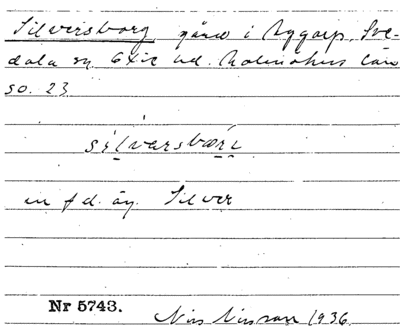 Silversborg, gård i Aggarp, Sve-
dala sn. Oxie hd. Malmöhus län
so. 23
silvarsbærj
en f d. äg. Silver
Nr 5743.
Nils Nilsson 1936.